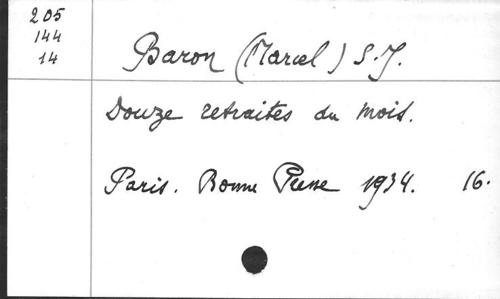 205
144
14
Baron (Marcel) S.J.
Douze retraites du mois.
Paris. Bonne Presse 1934. 16.